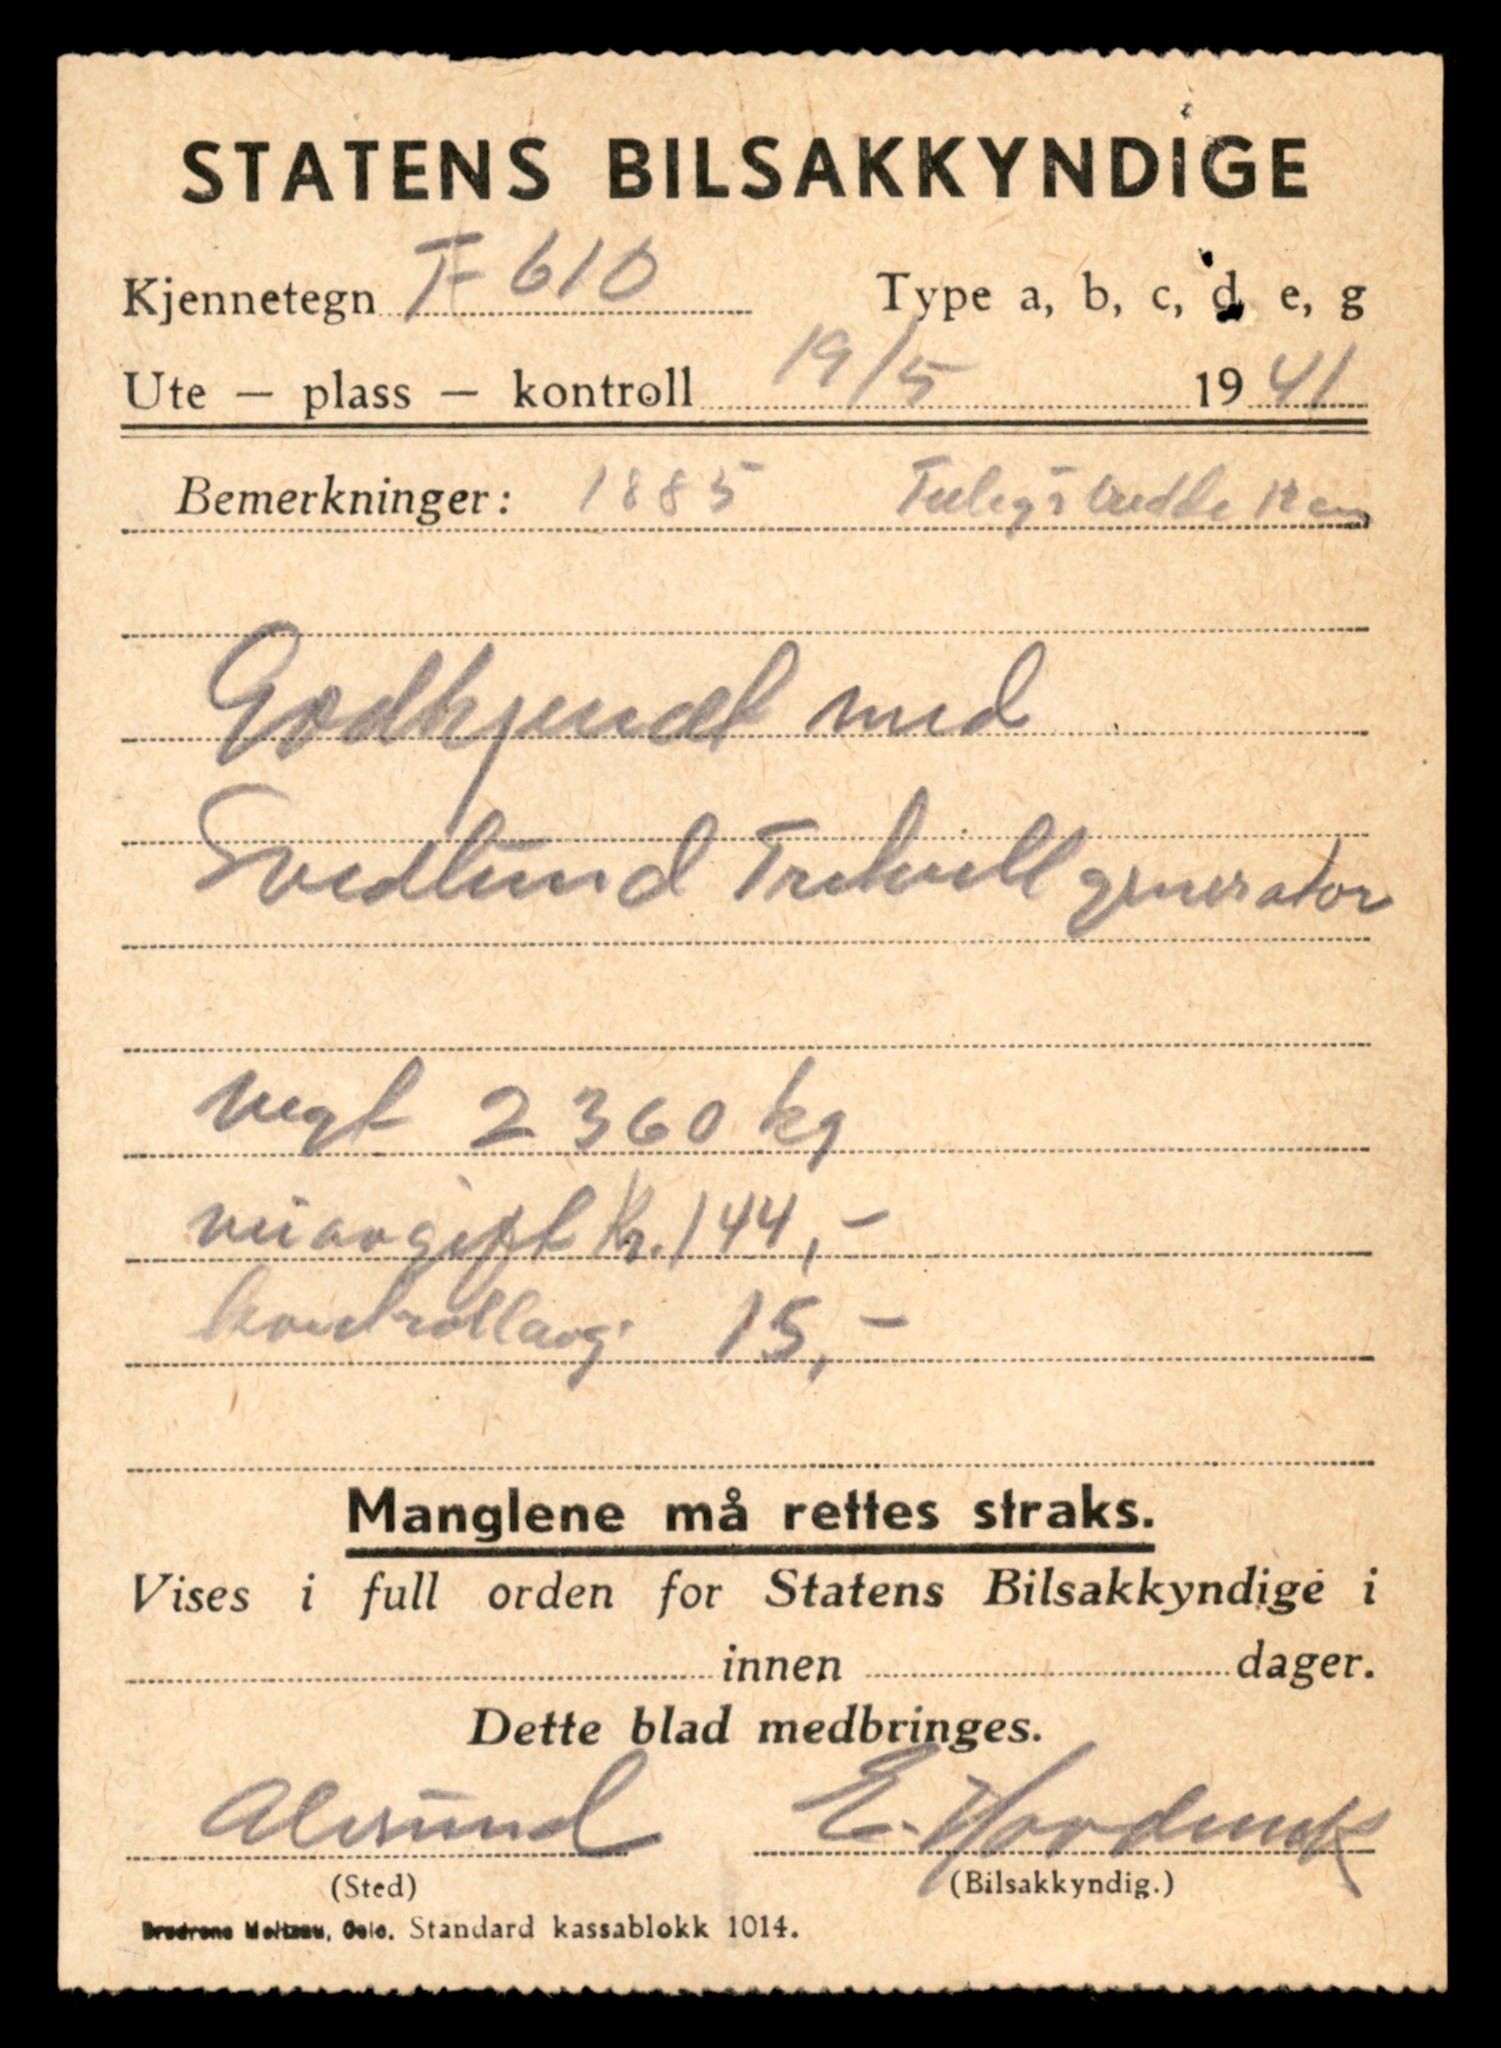 STATENS BILSAKKYNDIGE
Kjennetegn T-610 Type a, b, c, d, e, g
Ute - plass - kontroll 19/5 1941
Bemerkninger: 1885
Godkjendt med
Svedlund Trekull generator
Vegt 2360 kg
veiavgift Kr. 144,-
kontrollavg. 15,-
Manglene må rettes straks.
Vises i full orden for Statens Bilsakkyndige i
innen dager.
Dette blad medbringes.
Alesund E.
(Sted) (Bilsakkyndig.)
Oslo. Standard kassablokk 1014.